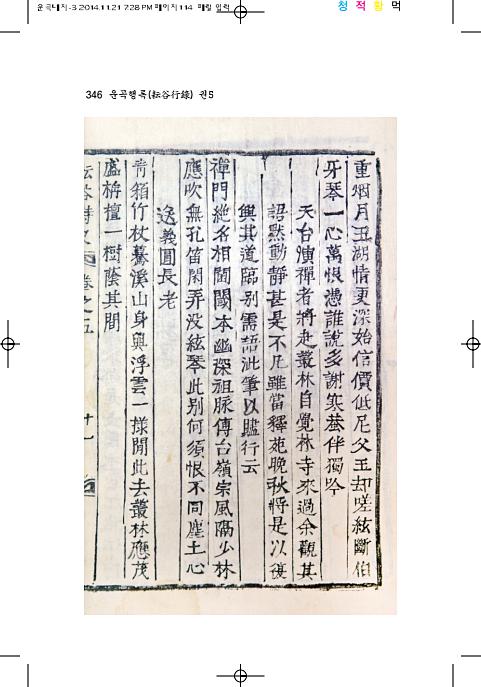 운곡대지-3 2014.11.21 7:28 PM 페이지114 매일 입력
청 적 황 먹
346 운곡행록(耘谷行錄) 권5
重烟月五湖情更深始信價低尼父玉却嗟絃斷伯
牙琴一心萬恨憑誰說多謝寒蛩伴獨吟
天台演禪者將赴叢林自覺林寺來過余觀其
語默動靜甚是不凡雖當釋苑晩秋將是以復
興其道臨別需語泚筆以贐行云
禪門絶名相閫閾本幽深祖脉傳台嶺宗風隔少林
應吹無孔笛閑弄没絃琴此別何須恨不同塵土心
送義圓長老
靑箱竹杖驀溪山身與浮雲一樣閒此去叢林應茂
盛栴檀一樹蔭其間
耘谷詩史 卷之五 十一